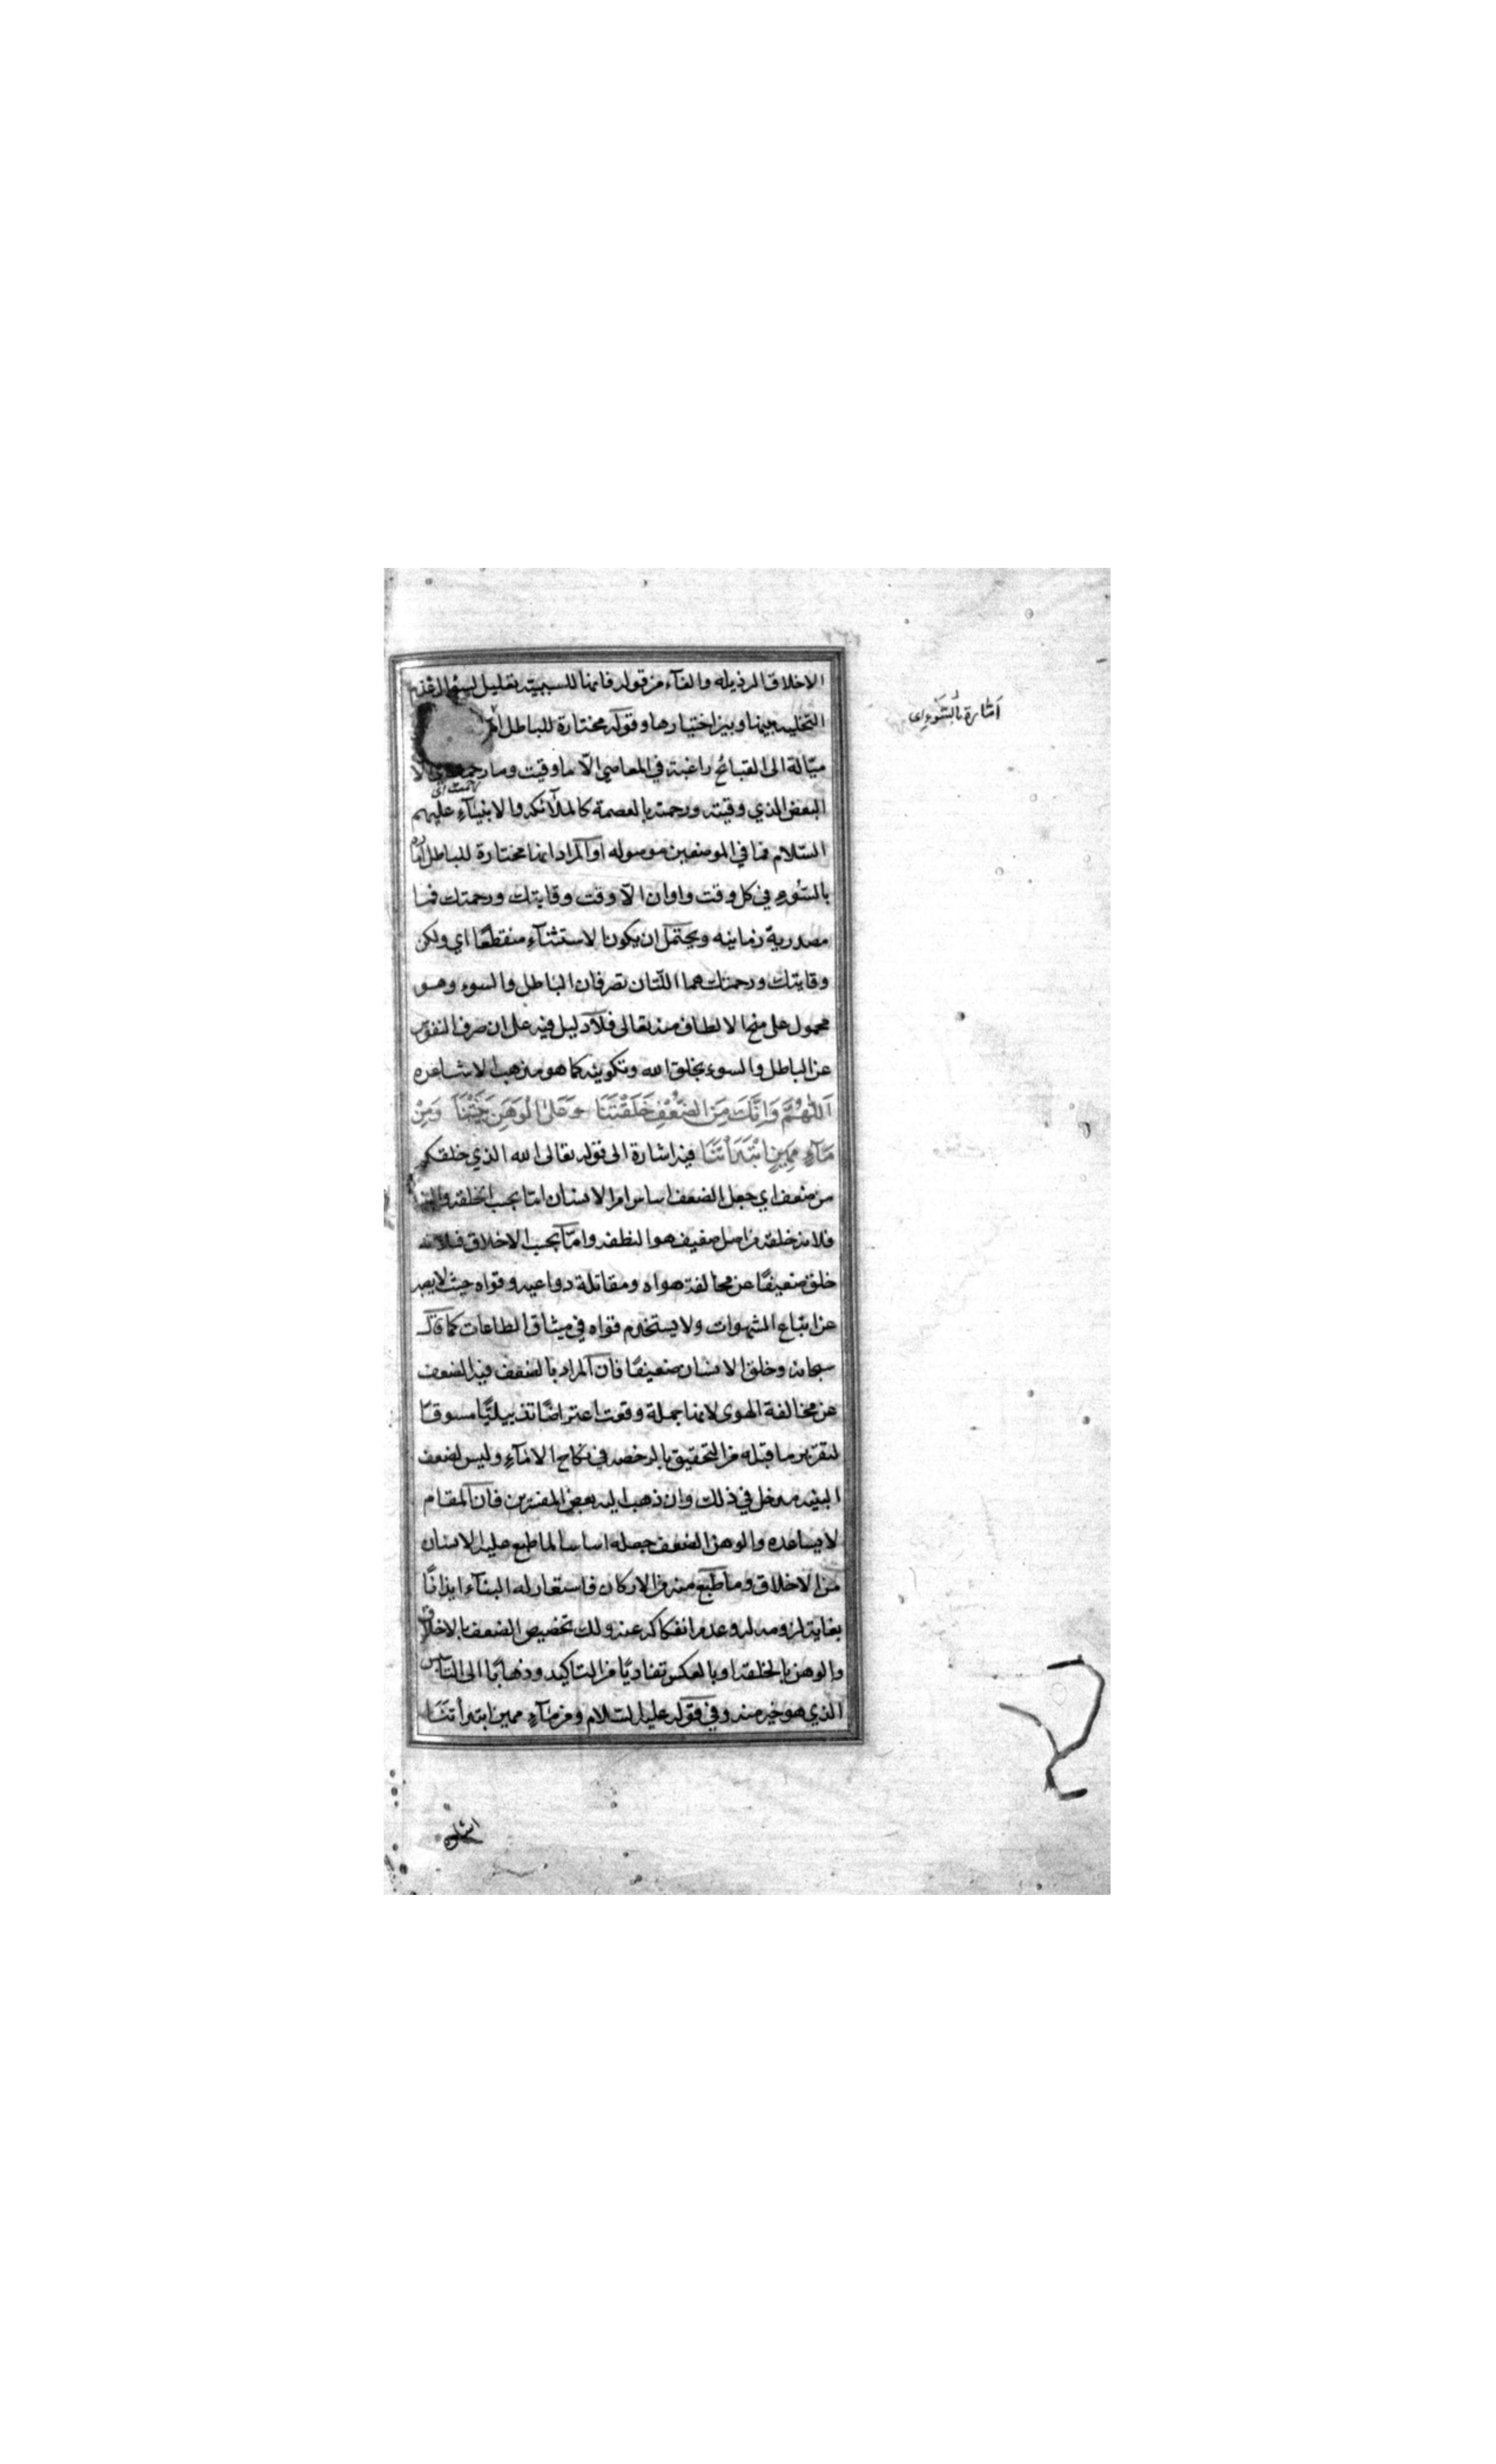 الاخلاق الرذيله والفآء من قوله فانها للسببية تعليل لسؤال عدم
التخليه بينها وبين اختيارها وقوله مختارة للباطل
اَمّارة بالسّوءِ اى
ميّالة الى القبائح راغبة في المعاصي الّا ما وقيت وما رحمت اى الا
البعض الذي وقيته ورحمته بالعصمة كالملآئكه والانبيآءِ عليهم
السّلام فما في الموضعين موصوله او المراد انها مختارة للباطل امّارة
بالسّوءِ في كل وقت واوان الّا وقت وقايتك ورحمتك فما
مصدرية زمانيه ويحتمل ان يكون الاستثنآءِ منقطعًا اي ولكن
وقايتك ورحمتك هما اللّتان تصرفان الباطل والسوء وهو
محمول على منح الالطاف منه تعالى فلا دليل فيه على ان صرف النفوس
عن الباطل والسوء بخلق الله وتكوينه كما هو مذهب الاشاعره
اَللّهُمَّ وَاِنَّكَ مِنَ الضَّعْفِ خَلَقْتَنَا وَعَلَى الْوَهْنِ بَنَيْتَنَا وَمِنْ
مَآءٍ مَهِينٍ ابْتَدَأْتَنَا فيه اشارة الى قوله تعالى الله الذي خلقكم
من ضعف اي جعل الضعف اساس امر الانسان امّا بحسب الخلقه والبنآ
فلانه خلقه من اصل ضعيف هو النطفه وامّا بحسب الاخلاق فلانه
خلق ضعيفًا عن مخالفة هواه ومقاتلة دواعيه وقواه حيث لا يصبر
عن اتباع الشهوات ولا يستخدم قواه في ميثاق الطاعات كما قال
سبحانه وخلق الانسان ضعيفًا فان المراد بالضعف فيه الضعف
عن مخالفة الهوى لانها جملة وقعت اعتراضًا تذييليًّا مسوقًا
لتقرير ما قبله من التحقيق بالرخصه في نكاح الامآءِ وليس لضعف
البنيه مدخل في ذلك وان ذهب اليه بعض المفسّرين فان المقام
لا يساعده والوهن الضعف جعله اساسا لما طبع عليه الانسان
من الاخلاق وما طبع منه من الاركان فاستعار له البنآء ايذانًا
بغاية لزومه له وعدم انفكاكه عنه ولك تخصيص الضعف بالاخلاق
والوهن بالخلقه او بالعكس تفاديًا من التاكيد وذهابًا الى التاسيس
الذي هو خير منه وفي قوله عليه السّلام ومن مآءٍ مهين ابتدأتنا
اشاره